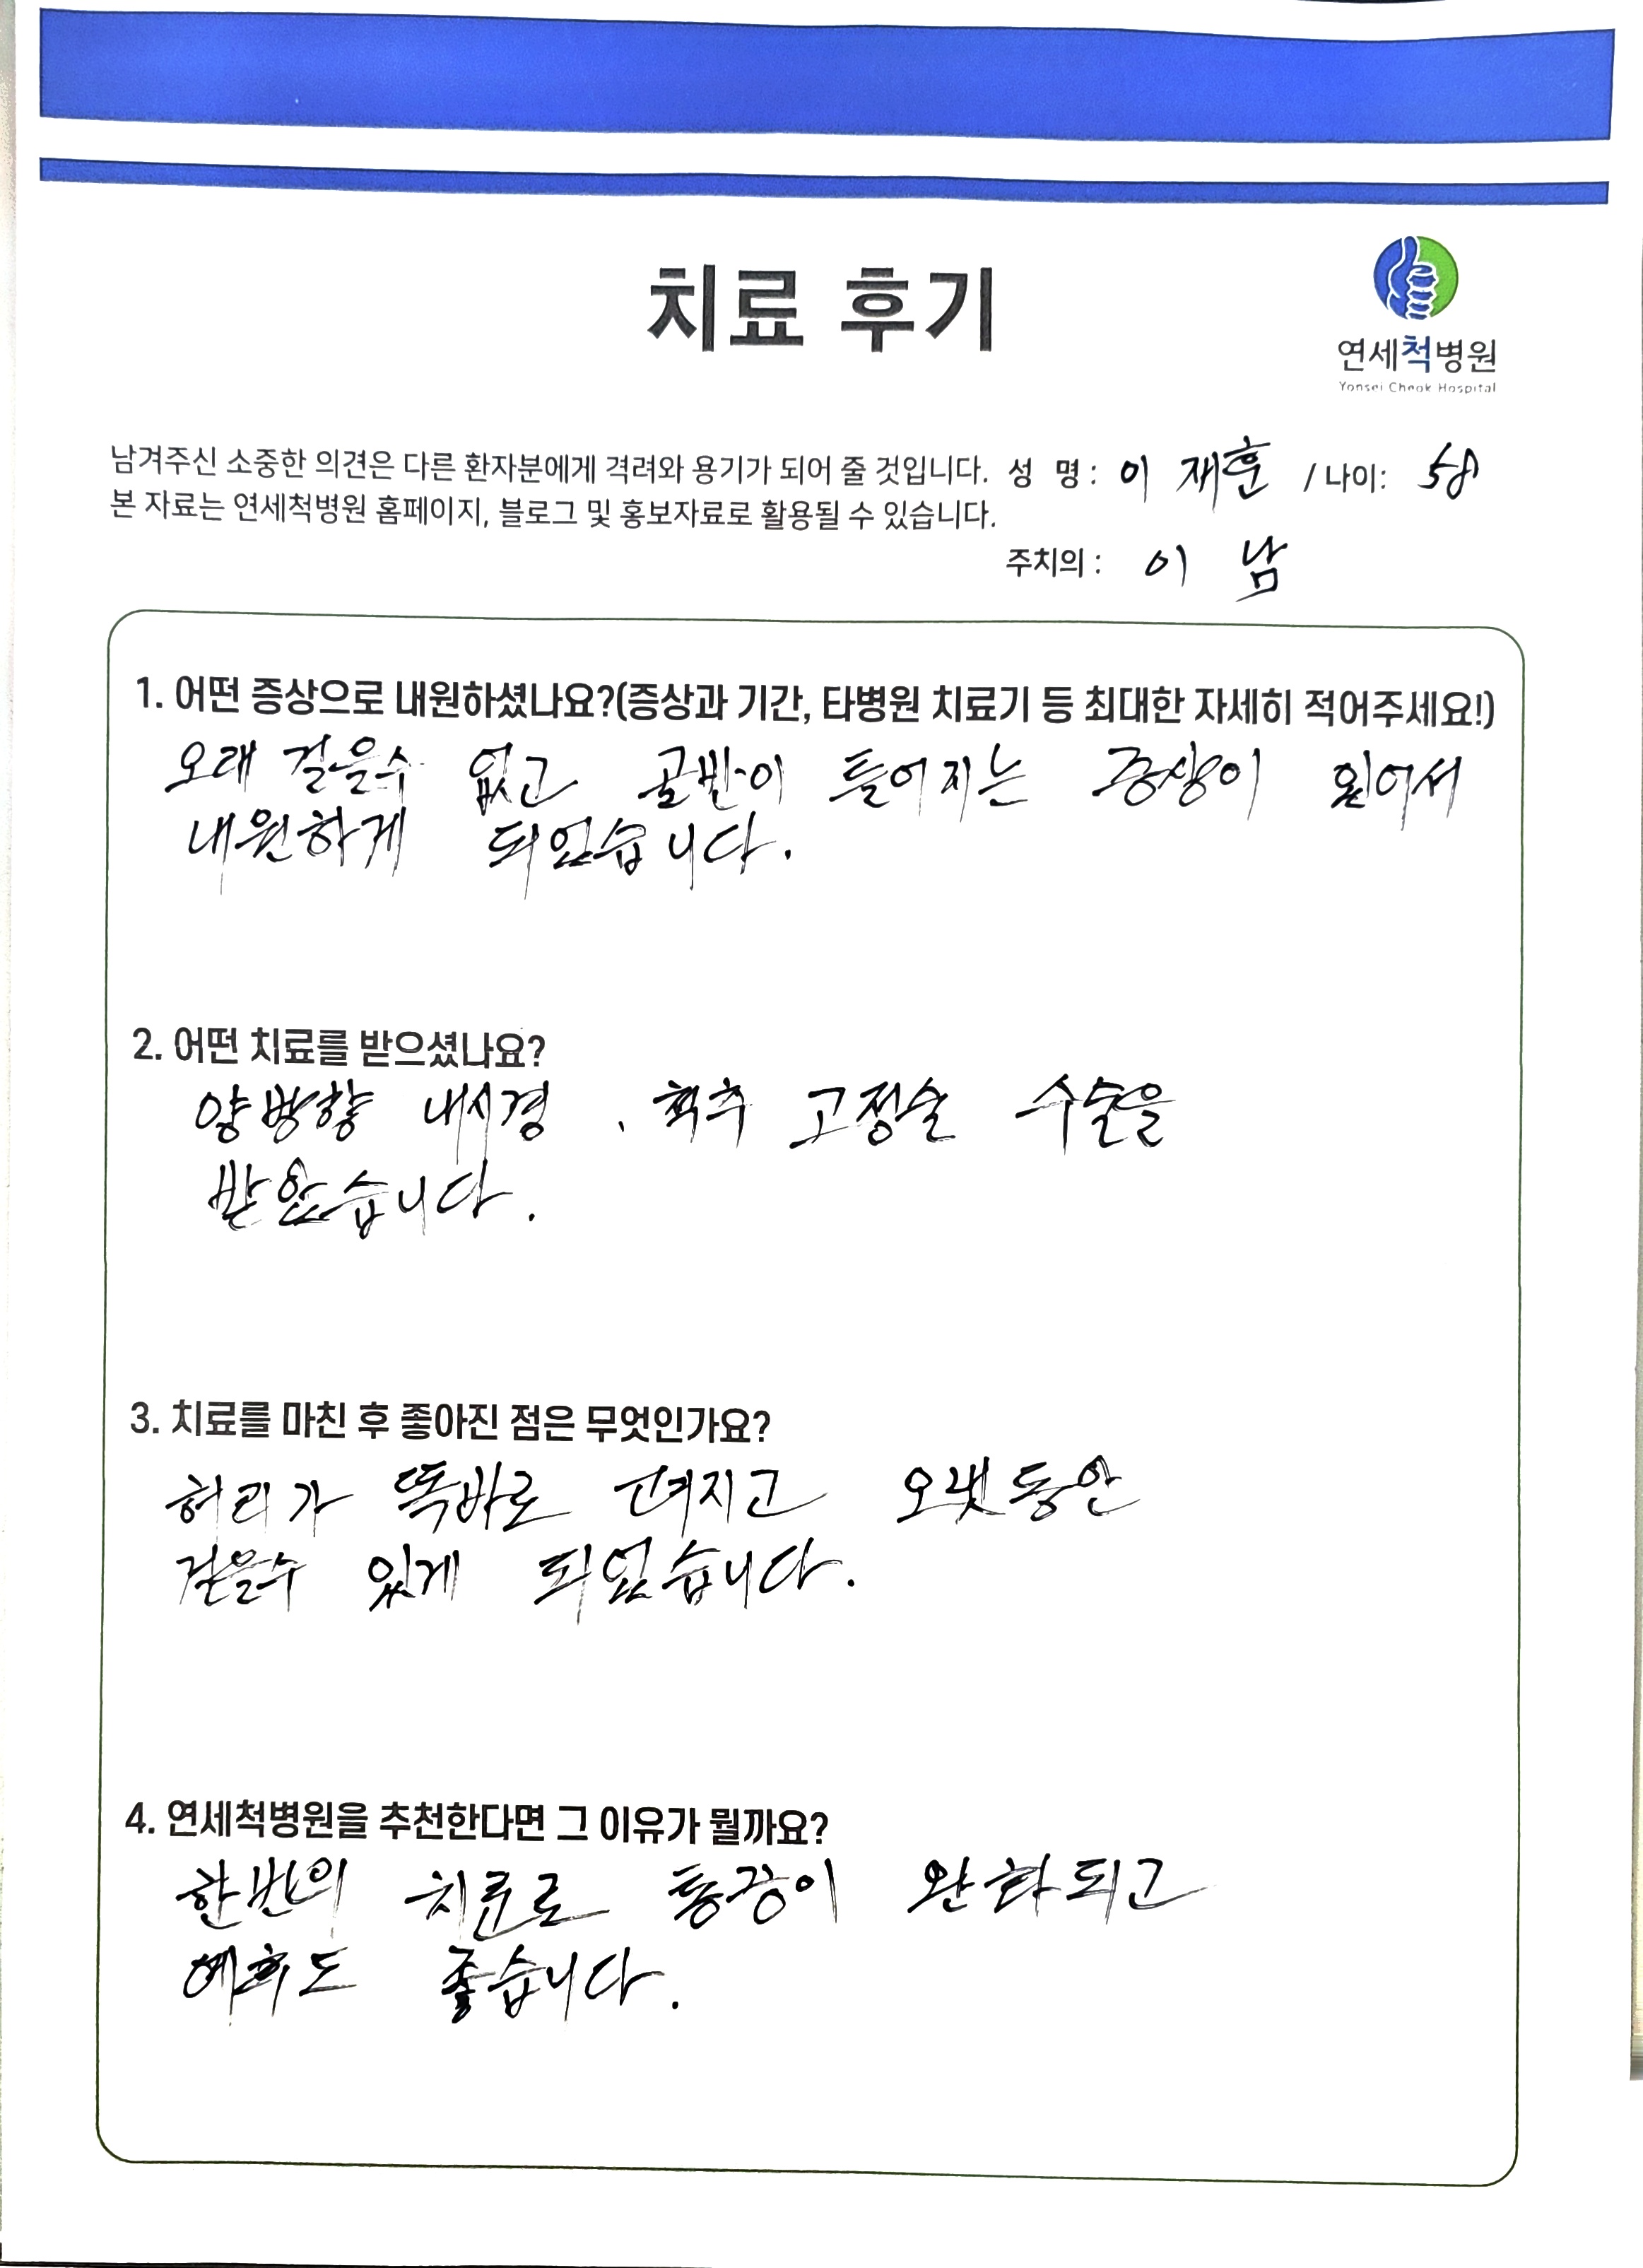 치료 후기
연세척병원
Yonsei Cheok Hospital
남겨주신 소중한 의견은 다른 환자분에게 격려와 용기가 되어 줄 것입니다. 성 명: 이재훈 /나이: 58
본 자료는 연세척병원 홈페이지, 블로그 및 홍보자료로 활용될 수 있습니다.
주치의: 이 남
1. 어떤 증상으로 내원하셨나요?(증상과 기간, 타병원 치료기 등 최대한 자세히 적어주세요!)
오래 걸을수 없고 골반이 틀어지는 증상이 있어서
내원하게 되었습니다.
2. 어떤 치료를 받으셨나요?
양방향 내시경, 척추 고정술 수술을
받았습니다.
3. 치료를 마친 후 좋아진 점은 무엇인가요?
허리가 똑바로 펴지고 오랫동안
걸을수 있게 되었습니다.
4. 연세척병원을 추천한다면 그 이유가 뭘까요?
한번의 치료로 통증이 완화되고
예후도 좋습니다.